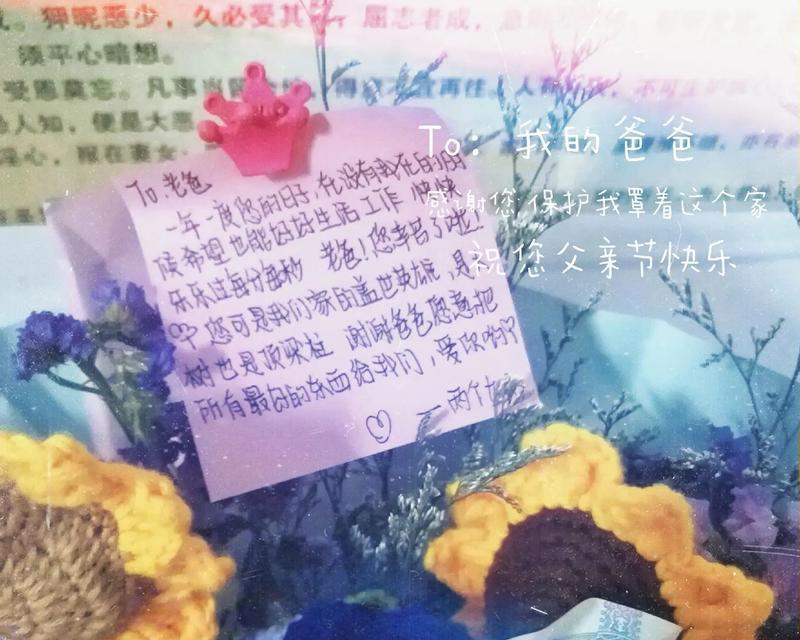 狎昵恶少，久必受其
屈志老成，急
须平心暗想。
受恩莫忘。凡事当留余地，得意不宜再往。人有喜庆，不可生妒
人知，便是大恶
淫心，报在妻女；
To：我的爸爸
感谢您 保护我罩着这个家
祝您父亲节快乐
To 老爸
一年一度您的日子，在没有我在的时
候希望也能好好生活工作 快快
乐乐过每分每秒 老爸！您辛苦了啦！
♡ 您可是我们家的盖世英雄 是
树也是顶梁柱 谢谢爸爸您总把
所有最好的东西给我们，爱你哟♡
♡ — 两个